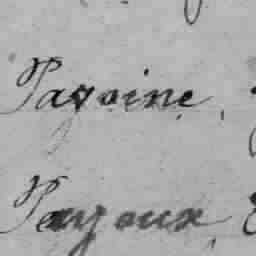 Pagoine,
Peyoux,